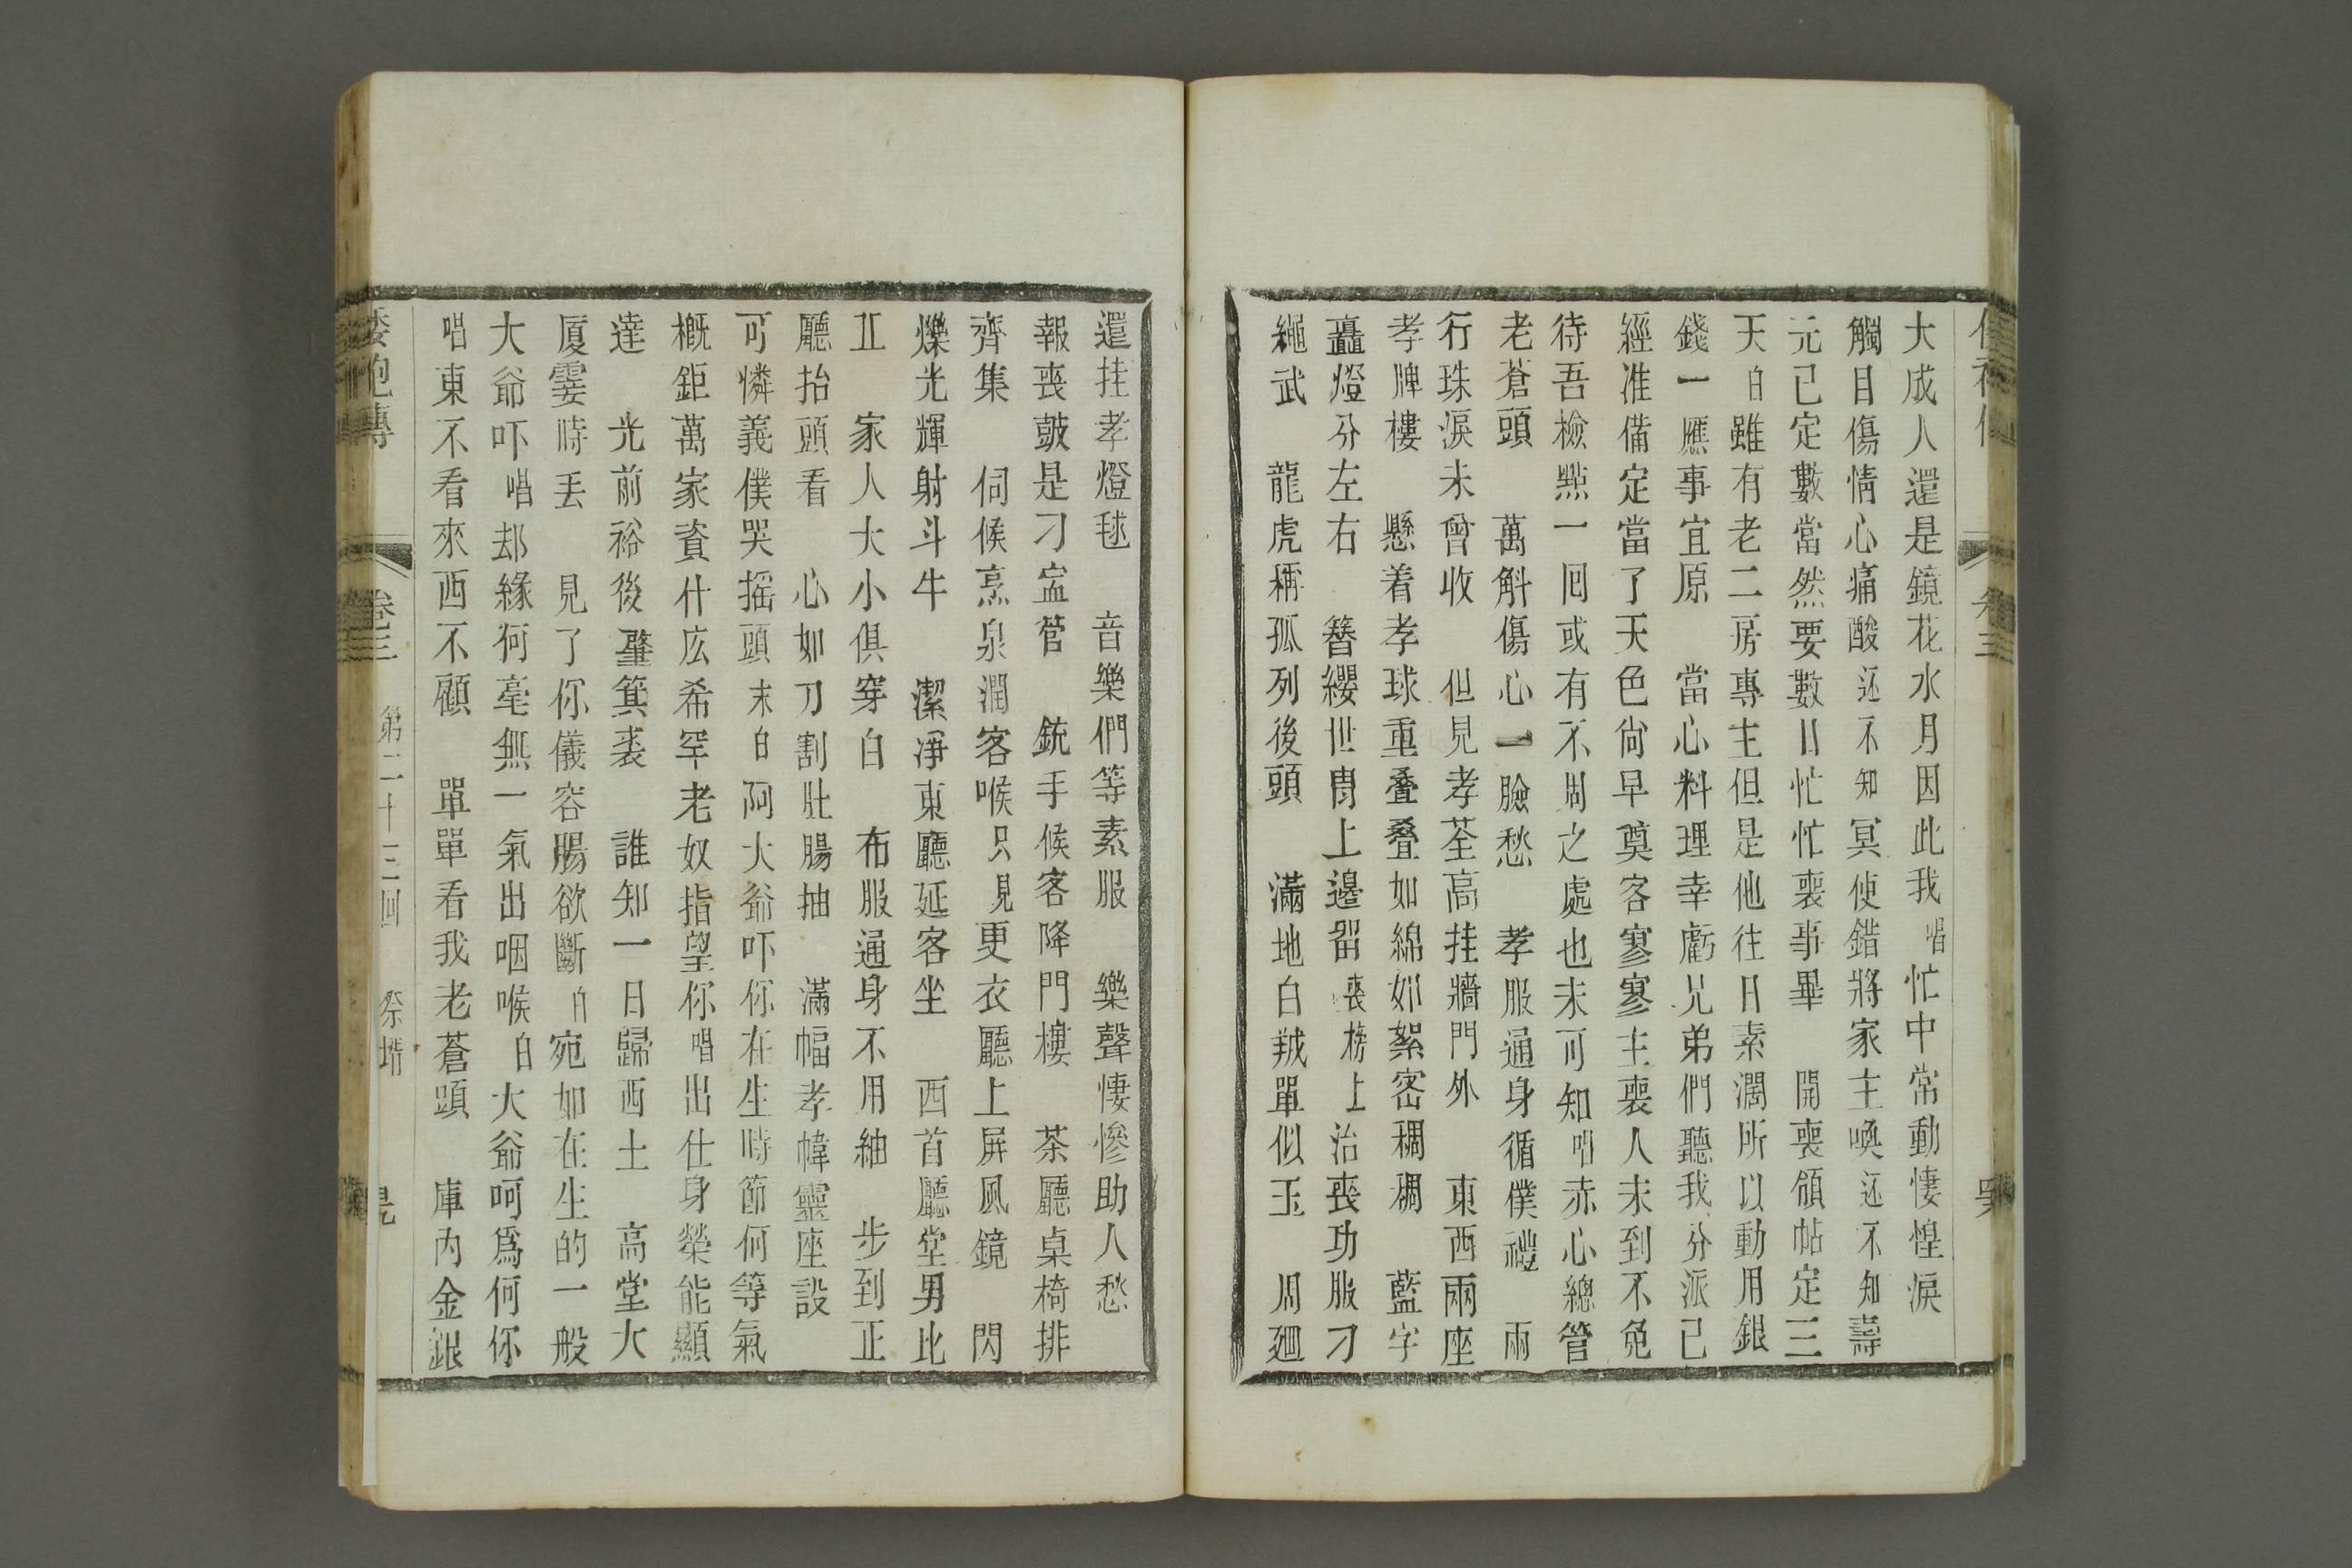 大成人還是鏡花水月因此我唱忙中常動悽惶淚
觸目傷情心痛酸还不知冥使錯將家主喚还不知壽
元已定數當然要數日忙忙喪事畢 開喪頒帖定三
天白雖有老二房專主但是他往日素濶所以動用銀
錢一應事宜原 當心料理幸虧兄弟們聽我分派已
經准備定當了天色尙早奠客寥寥主喪人未到不免
待吾檢㸃一囘或有不周之處也未可知唱赤心總管
老蒼頭 萬斛傷心一臉愁 孝服通身循僕禮 兩
行珠淚未曾收 但見孝荃高挂牆門外 東西兩座
孝牌樓 懸着孝球重叠叠如綿如絮密稠稠 藍字
矗燈分左右 簪纓世冑上邊留喪榜上治喪功服刁
繩武 龍虎稱孤列後頭 滿地白羢單似玉 周廻
還挂孝燈毬 音樂們等素服 樂聲悽慘助人愁
報喪皷是刁寍管 銃手候客降門樓 茶廳桌椅排
齊集 伺候烹泉潤客喉只見更衣廳上屏風鏡 閃
爍光輝射斗牛 潔凈東廳延客坐 西首廳堂男比
丘 家人大小俱穿白 布服通身不用紬 步到正
廳抬頭看 心如刀割肚腸抽 滿幅孝幃靈座設
可憐義僕哭搖頭末白阿大爺吓你在生時節何等氣
概鉅萬家資什庅希罕老奴指望你唱出仕身榮能顯
達 光前裕後肇箕裘 誰知一日歸西土 高堂大
厦霎時丟 見了你儀容腸欲斷白宛如在生的一般
大爺吓唱却緣何毫無一氣出咽喉白大爺呵爲何你
唱東不看來西不顧 單單看我老蒼頭 庫內金銀
倭袍傳 卷三 第二十三囘 祭壻